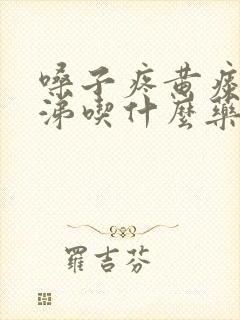 嗓子疼黄痰
涕喫什麼藥
羅吉芬